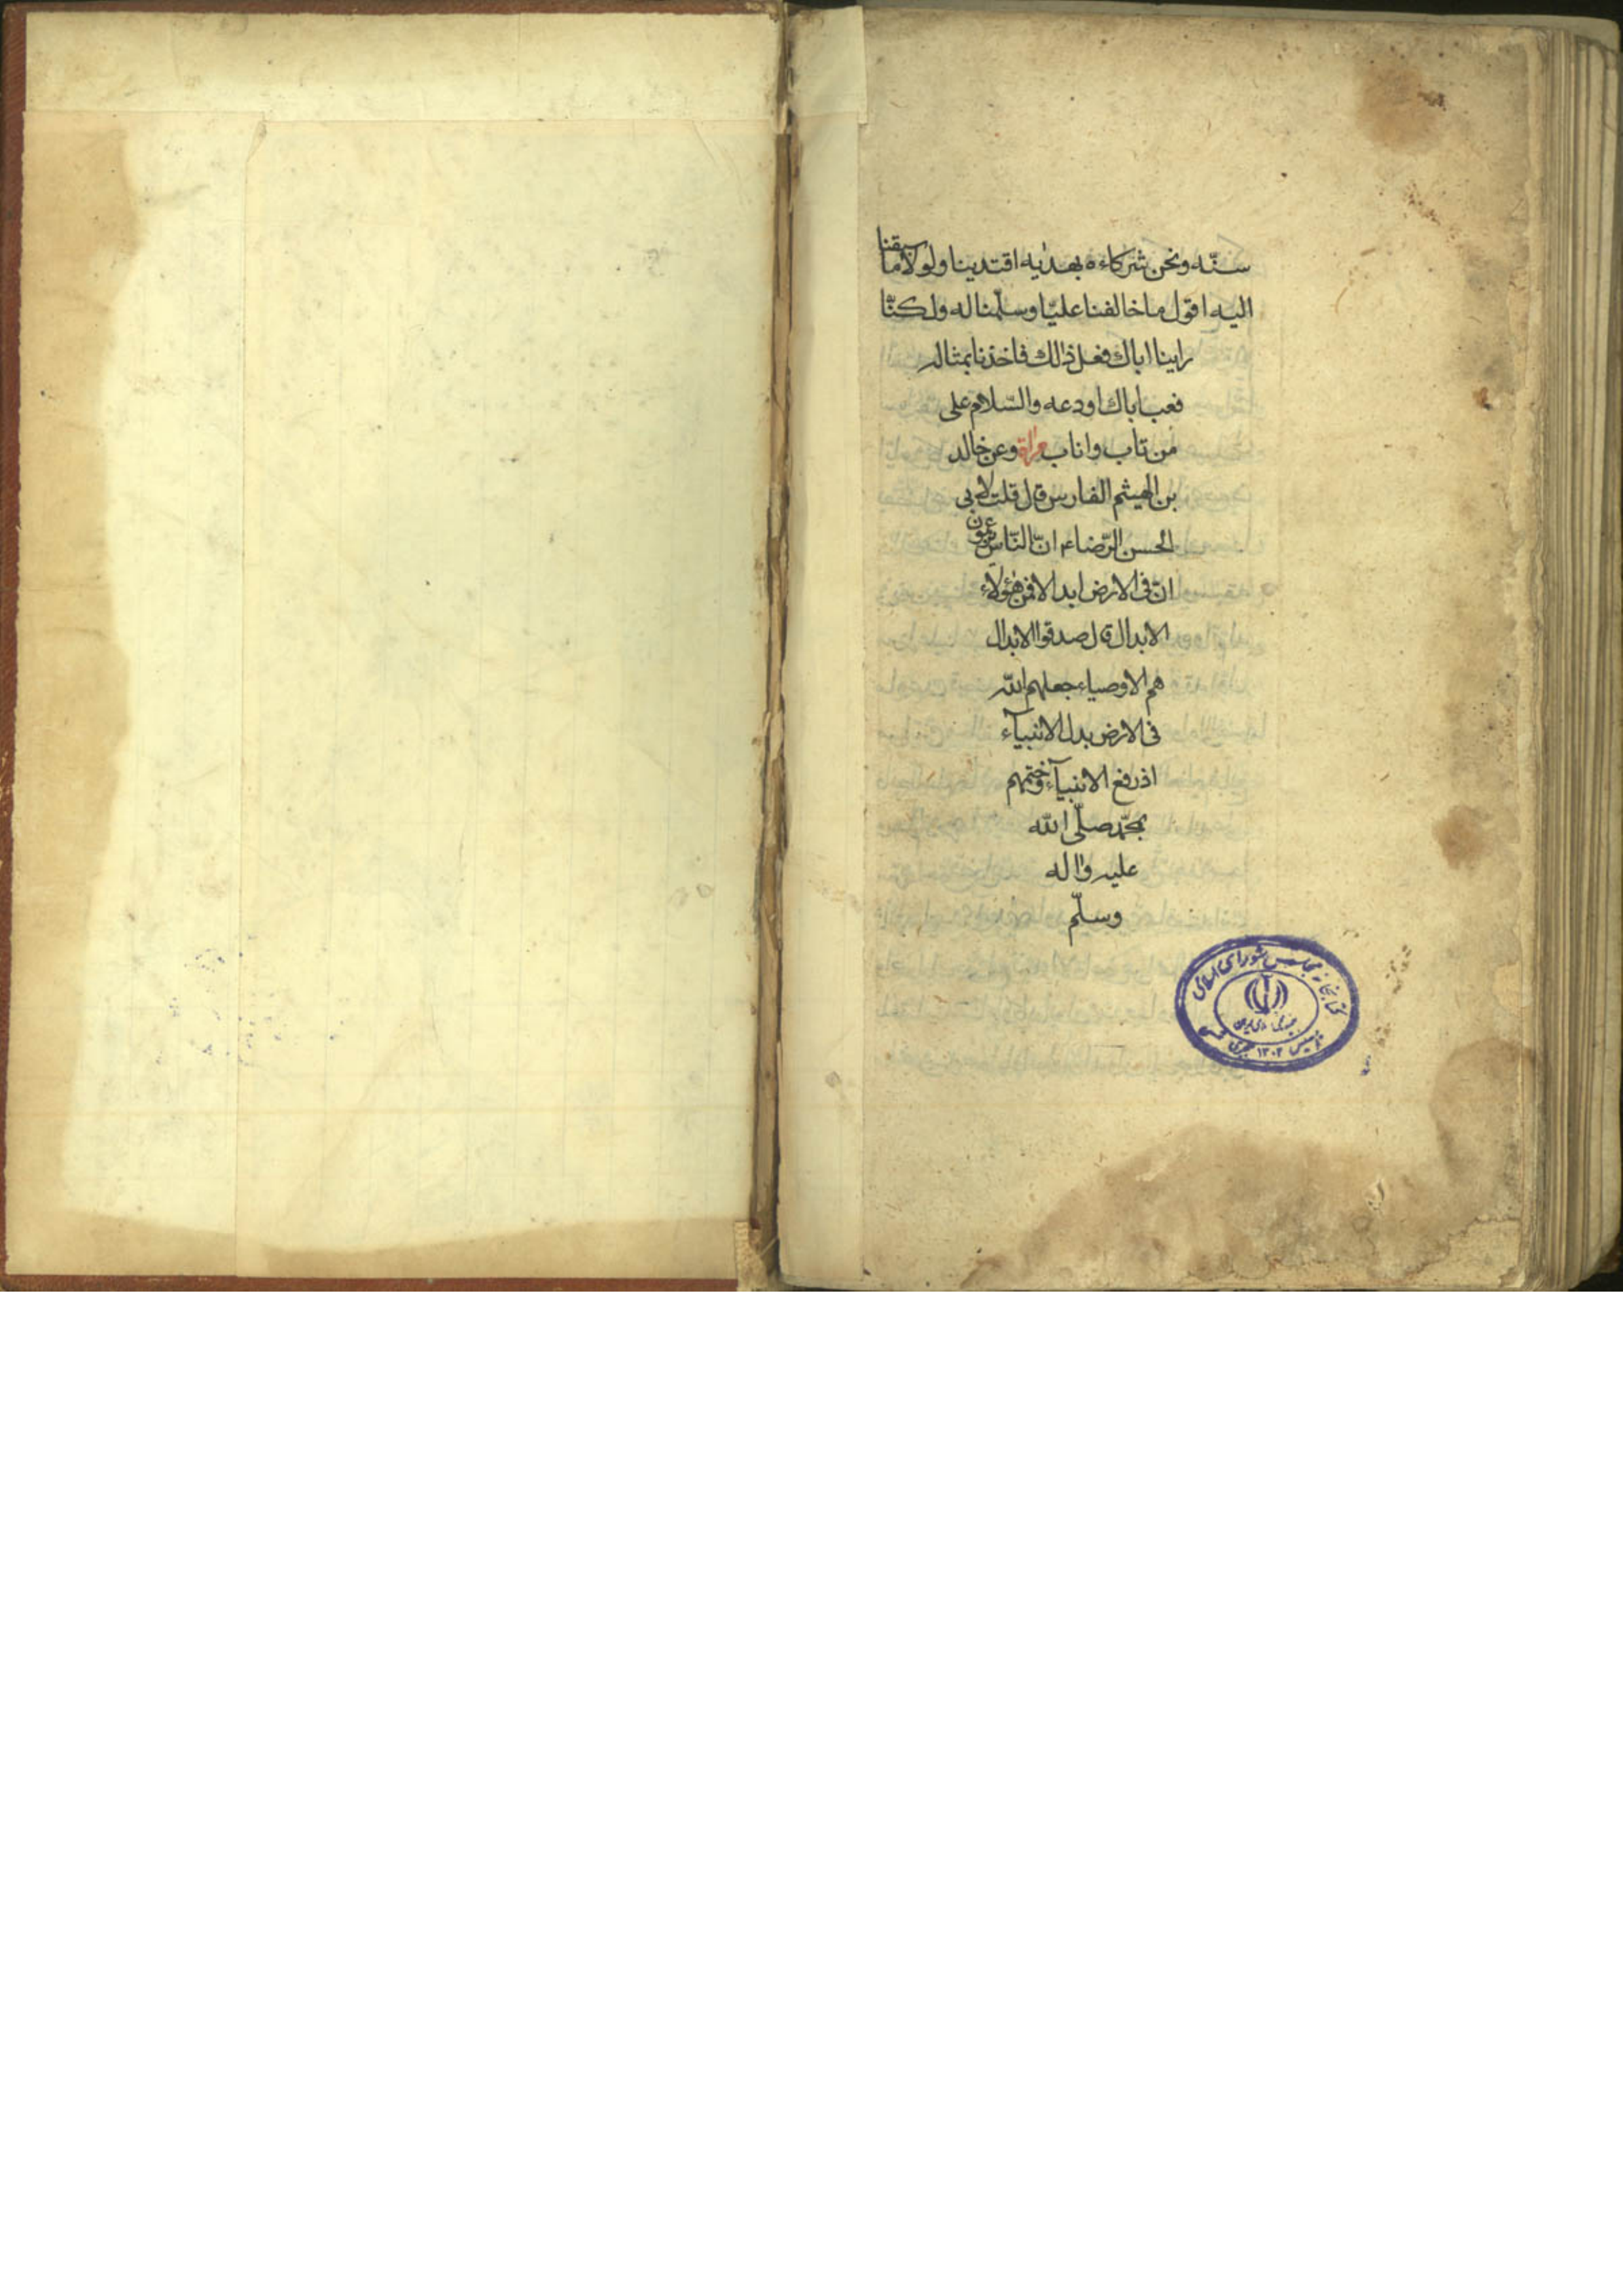 سنّه ونحن شركاءه بهديه اقتدينا ولولا ما سبقنا
اليه اقول ما خالفنا عليّا وسلّمنا له ولكنّا
راينا اباك فعل ذلك فاخذنا بمثاله
فعب اباك اودعه والسّلام على
من تاب واناب وعن خالد
بن الهيثم الفارس قال قلت لابي
الحسن الرّضاء انّ النّاس يزعمون
انّ فى الارض ابدالا فمن هؤلاء
الابدال قال صدقوا الابدال
هم الاوصياء جعلهم اللّه
فى الارض بدل الانبيآء
اذ رفع الانبيآء وختمهم
بمحمّد صلّى اللّه
عليه واله
وسلّم
كتابخانه مجلس شوراى اسلامى
جمهورى اسلامى ايران
تأسيس ١٣٠٢ هجرى شمسى